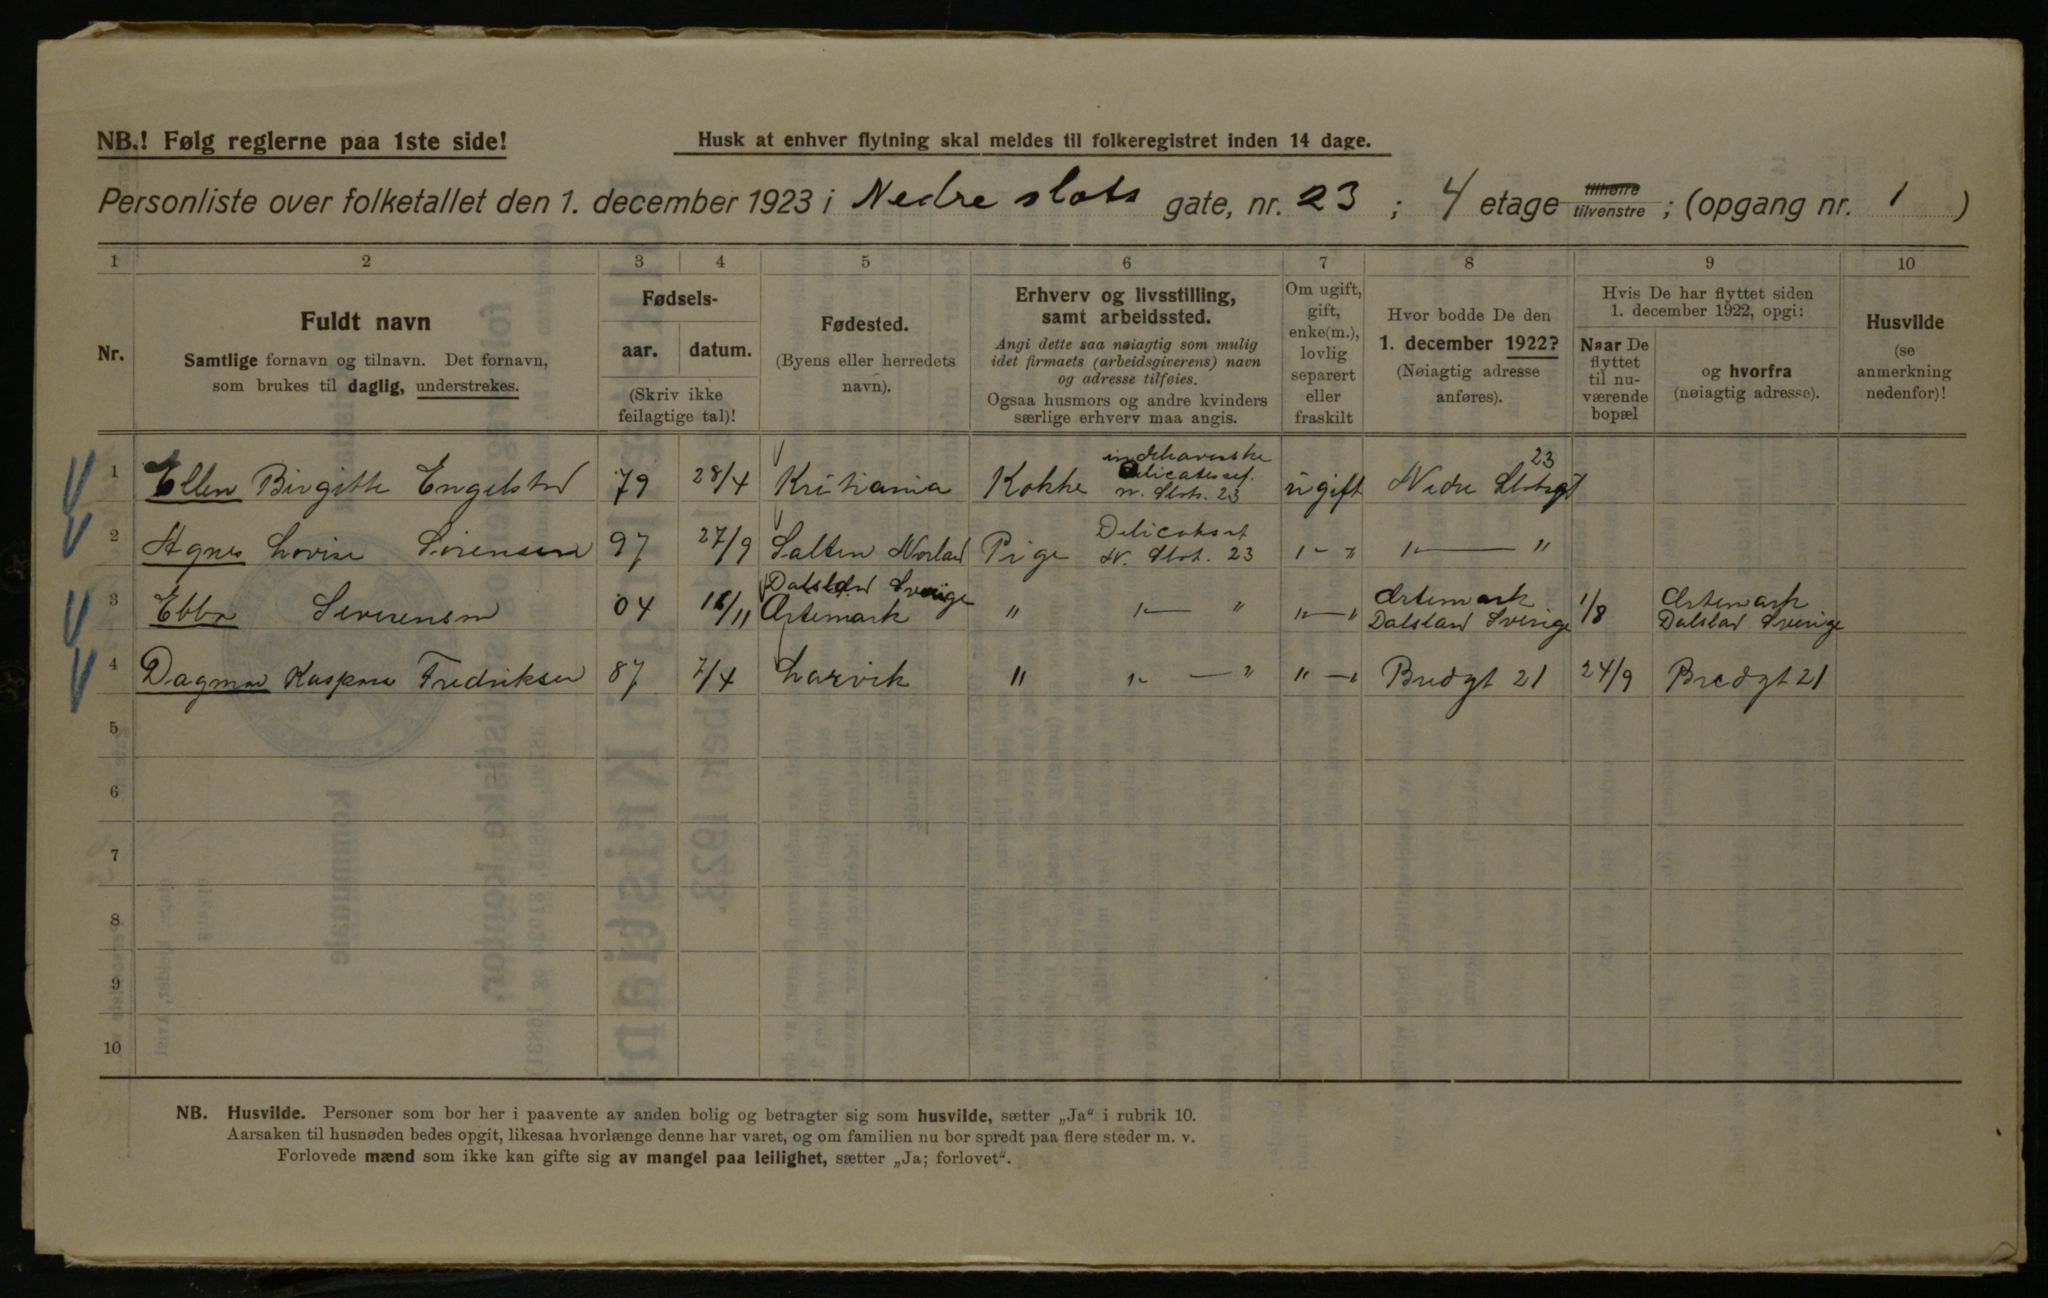 NB.! Følg reglerne paa 1ste side!
Husk at enhver flytning skal meldes til folkeregistret inden 14 dage.
Personliste over folketallet den 1. december 1923 i Nedre slots gate, nr. 23 ; 4 etage tilhøire tilvenstre ; (opgang nr. 1 )
1 2 3 4 5 6 7 8 9 10
Nr.
Fuldt navn
Samtlige fornavn og tilnavn. Det fornavn,
som brukes til daglig, understrekes.
Fødsels-
aar. datum.
(Skriv ikke
feilagtige tal)!
Fødested.
(Byens eller herredets
navn).
Erhverv og livsstilling,
samt arbeidssted.
Angi dette saa nøiagtig som mulig
idet firmaets (arbeidsgiverens) navn
og adresse tilføies.
Ogsaa husmors og andre kvinders
særlige erhverv maa angis.
Om ugift,
gift,
enke(m.),
lovlig
separert
eller
fraskilt
Hvor bodde De den
1. december 1922?
(Nøiagtig adresse
anføres).
Hvis De har flyttet siden
1. december 1922, opgi:
Naar De
flyttet
til nu-
værende
bopæl
og hvorfra
(nøiagtig adresse).
Husvilde
(se
anmerkning
nedenfor)!
1 Ellen Birgitte Engelstad 79 28/4 Kristiania Kokke n. Slots. 23 ugift Nedre Slotsgt 23
2 Agnes Lovise Sørensen 97 27/9 Salten Norland Pige N. Slot. 23 " — " " — "
3 Ebba Severensen 04 11 Dalsland Sverige
Artemark " " — " " — " Artemark
Dalsland Sverige 1/8 Artemark
Dalsland Sverige
4 Dagmar Fredriksen 87 7/4 Larvik " " — " " — " Bredgt 21 24/9 Bredgt 21
5
6
7
8
9
10
NB. Husvilde. Personer som bor her i paavente av anden bolig og betragter sig som husvilde, sætter „Ja“ i rubrik 10.
Aarsaken til husnøden bedes opgit, likesaa hvorlænge denne har varet, og om familien nu bor spredt paa flere steder m. v.
Forlovede mænd som ikke kan gifte sig av mangel paa leilighet, sætter „Ja; forlovet“.